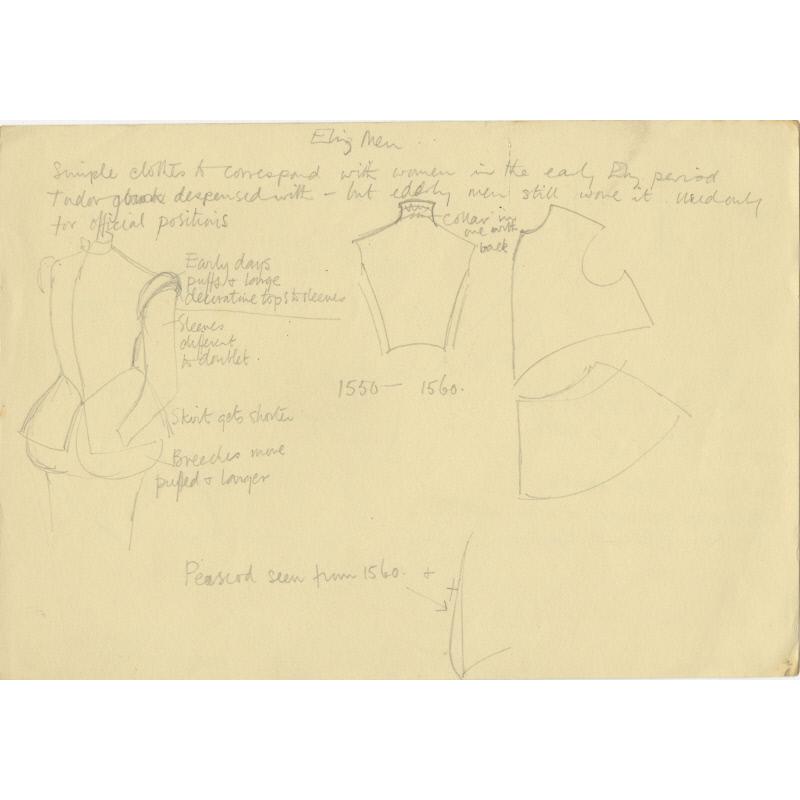 Eliz Men
Simple clothes to correspond with women in the early Eliz period
Tudor despensed with - but elderly men still wore it. Used only
for official positions
Collar in
one with
back
Early days
puffs & large
decorative tops to sleeves
Sleeves
different
to doublet.
1550 - 1560.
Skirt gets shorter
Breeches more
puffed & larger
Peascod seen from 1560. +